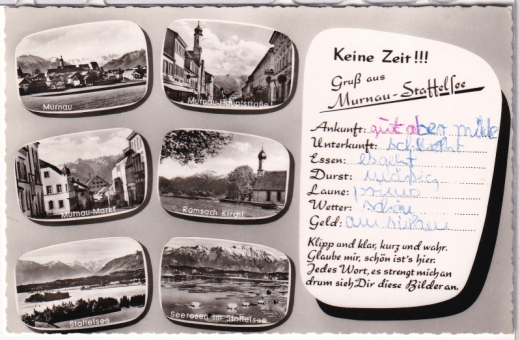 Murnau
Murnau-Hauptstraße
Murnau-Markt
Ramsach Kircht
Staffelsee
Seerosen im Staffelsee
Keine Zeit!!!
Gruß aus
Murnau-Staffelsee
Ankunft: gut aber müde
Unterkunft: schlecht
Essen: es geht
Durst: mässig
Laune: prima
Wetter: schön
Geld:
Klipp und klar, kurz und wahr.
Glaube mir, schön ist's hier.
Jedes Wort, es strengt mich an
drum sieh, Dir diese Bilder an.